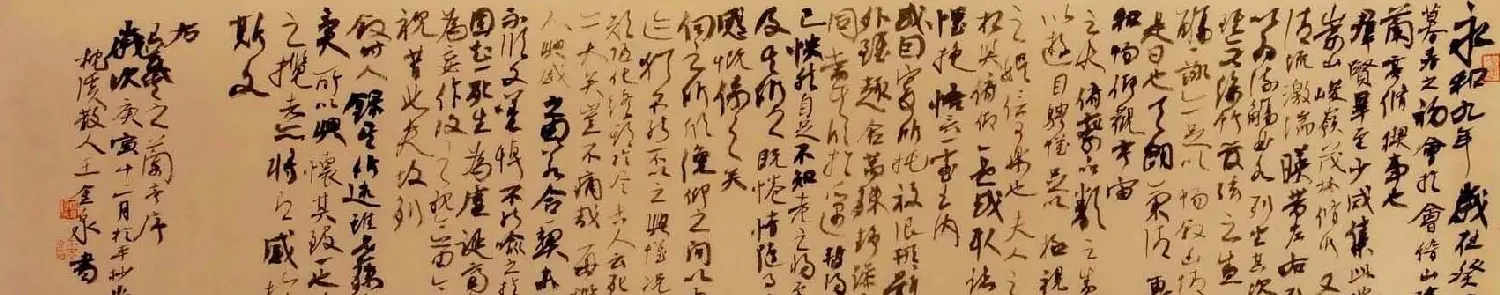 永和九年歲在癸
暮春之初會於會稽山
蘭亭脩禊事也
群賢畢至少長咸集此地
崇山峻嶺茂林脩竹又
清流激湍暎帶左右引
以為流觴曲水列坐其次
雖無絲竹管絃之盛
觴一詠亦足以暢敘幽情
是日也天朗氣清惠
和暢仰觀宇宙
之大俯察品類之盛
以遊目騁懷足以極視
之娛信可樂也夫人之
相與俯仰一世或取諸
懷抱悟言一室之內
或因寄所託放浪形骸
外雖趣舍萬殊靜躁
同當其欣於所遇暫得
己快然自足不知老之將至
及其所之既惓情隨事
感慨係之矣
向之所欣俛仰之間以
迹猶不能不以之興懷況
短隨化終期於盡古人云死
亦大矣豈不痛哉每攬
人興感之由若合一契未
不臨文嗟悼不能喻之於
固知一死生為虛誕齊
為妄作後之視今亦由今
視昔悲夫故列
敘時人錄其所述雖世殊
異所以興懷其致一也
之攬者亦將有感於
斯文
右
羲之蘭亭序
歲次庚寅十一月於
散人王金泉書